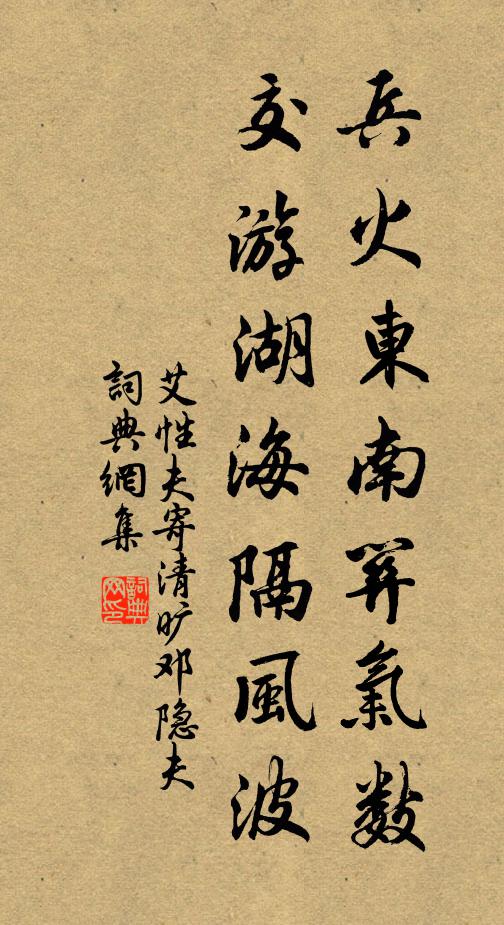 兵火東南關氣數
交游湖海隔風波
艾性夫寄清旷邓隐夫
詞典網集
詞典网印